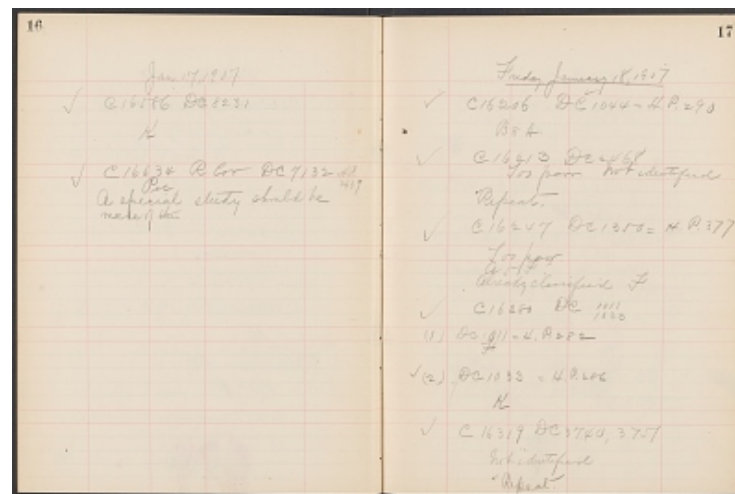 16
Jan 17, 1917
✓ C16586 DC6231
K
✓ C16634 R Cor DC7132
Pec
A special study should be
made of this
17
Friday January 18, 1917
✓ C16206 DC1044 = H.P. 290
B8A
✓ C16213 DC4468
Too poor Not identified
Repeat.
✓ C16247 DC1380 = H.P. 377
Too poor
Already classified F
✓ C16280 DC 1011
1033
(1) DC1011 = H.P. 282
F
✓ (2) DC1033 = H.P. 286
K
✓ C16319 DC3740, 3751
Not identified
"Repeat"